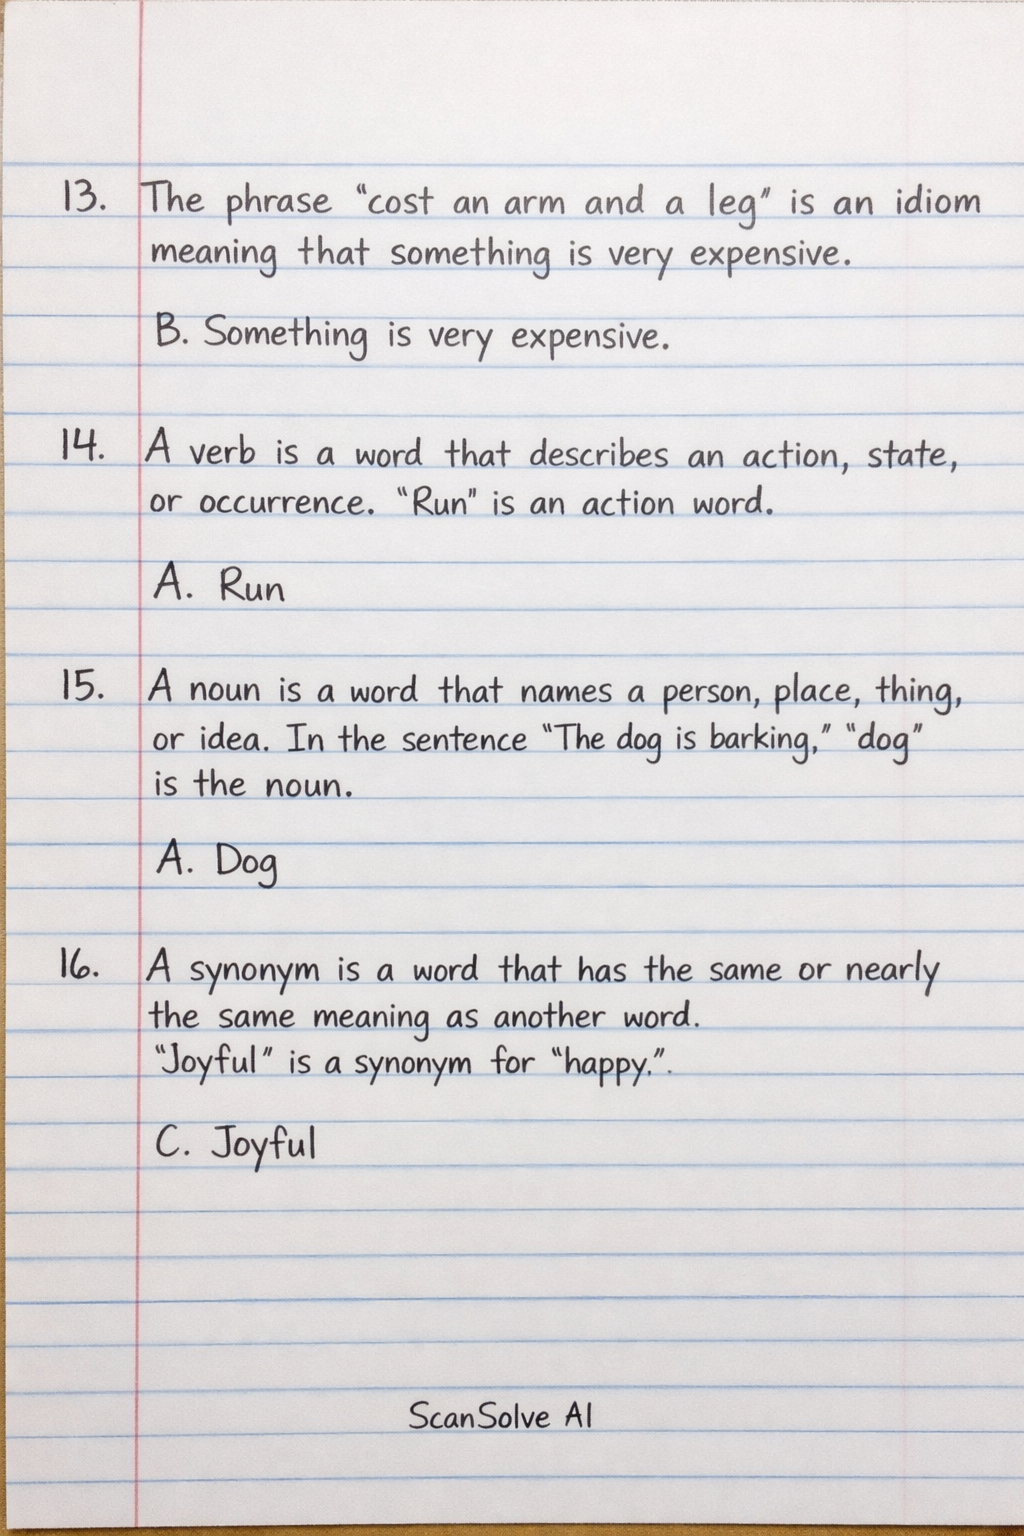 13. The phrase “cost an arm and a leg” is an idiom
meaning that something is very expensive.
B. Something is very expensive.
14. A verb is a word that describes an action, state,
or occurrence. “Run” is an action word.
A. Run
15. A noun is a word that names a person, place, thing,
or idea. In the sentence “The dog is barking,” “dog”
is the noun.
A. Dog
16. A synonym is a word that has the same or nearly
the same meaning as another word.
“Joyful” is a synonym for “happy.”.
C. Joyful
ScanSolve AI